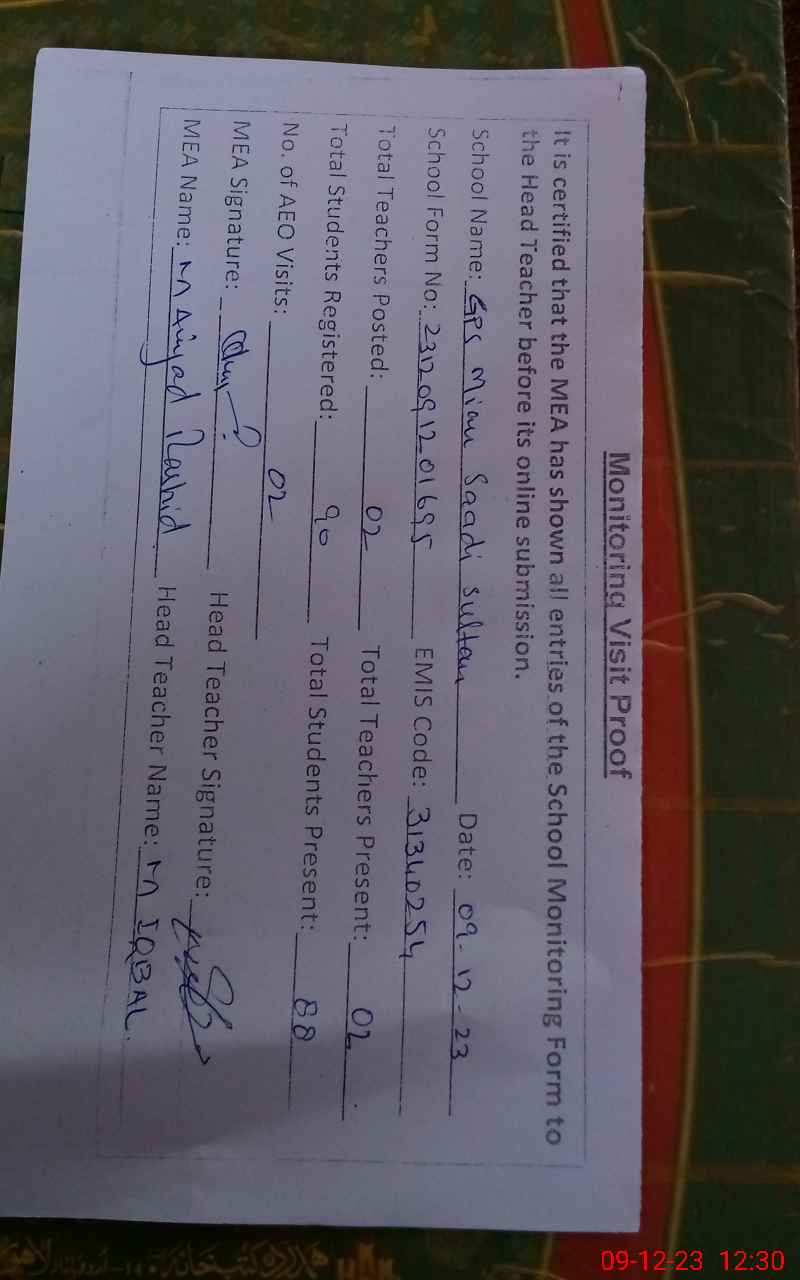 Monitoring Visit Proof
It is certified that the MEA has shown all entries of the School Monitoring Form to
the Head Teacher before its online submission.
School Name: GPS Mian Saadi Sultan Date: 09-12-23
School Form No: 2312091201695 EMIS Code: 31340254
Total Teachers Posted: 02 Total Teachers Present: 02
Total Students Registered: 90 Total Students Present: 88
No. of AEO Visits: 02
MEA Signature: Head Teacher Signature:
MEA Name: M Amjad Rashid Head Teacher Name: M IQBAL.
09-12-23 12:30